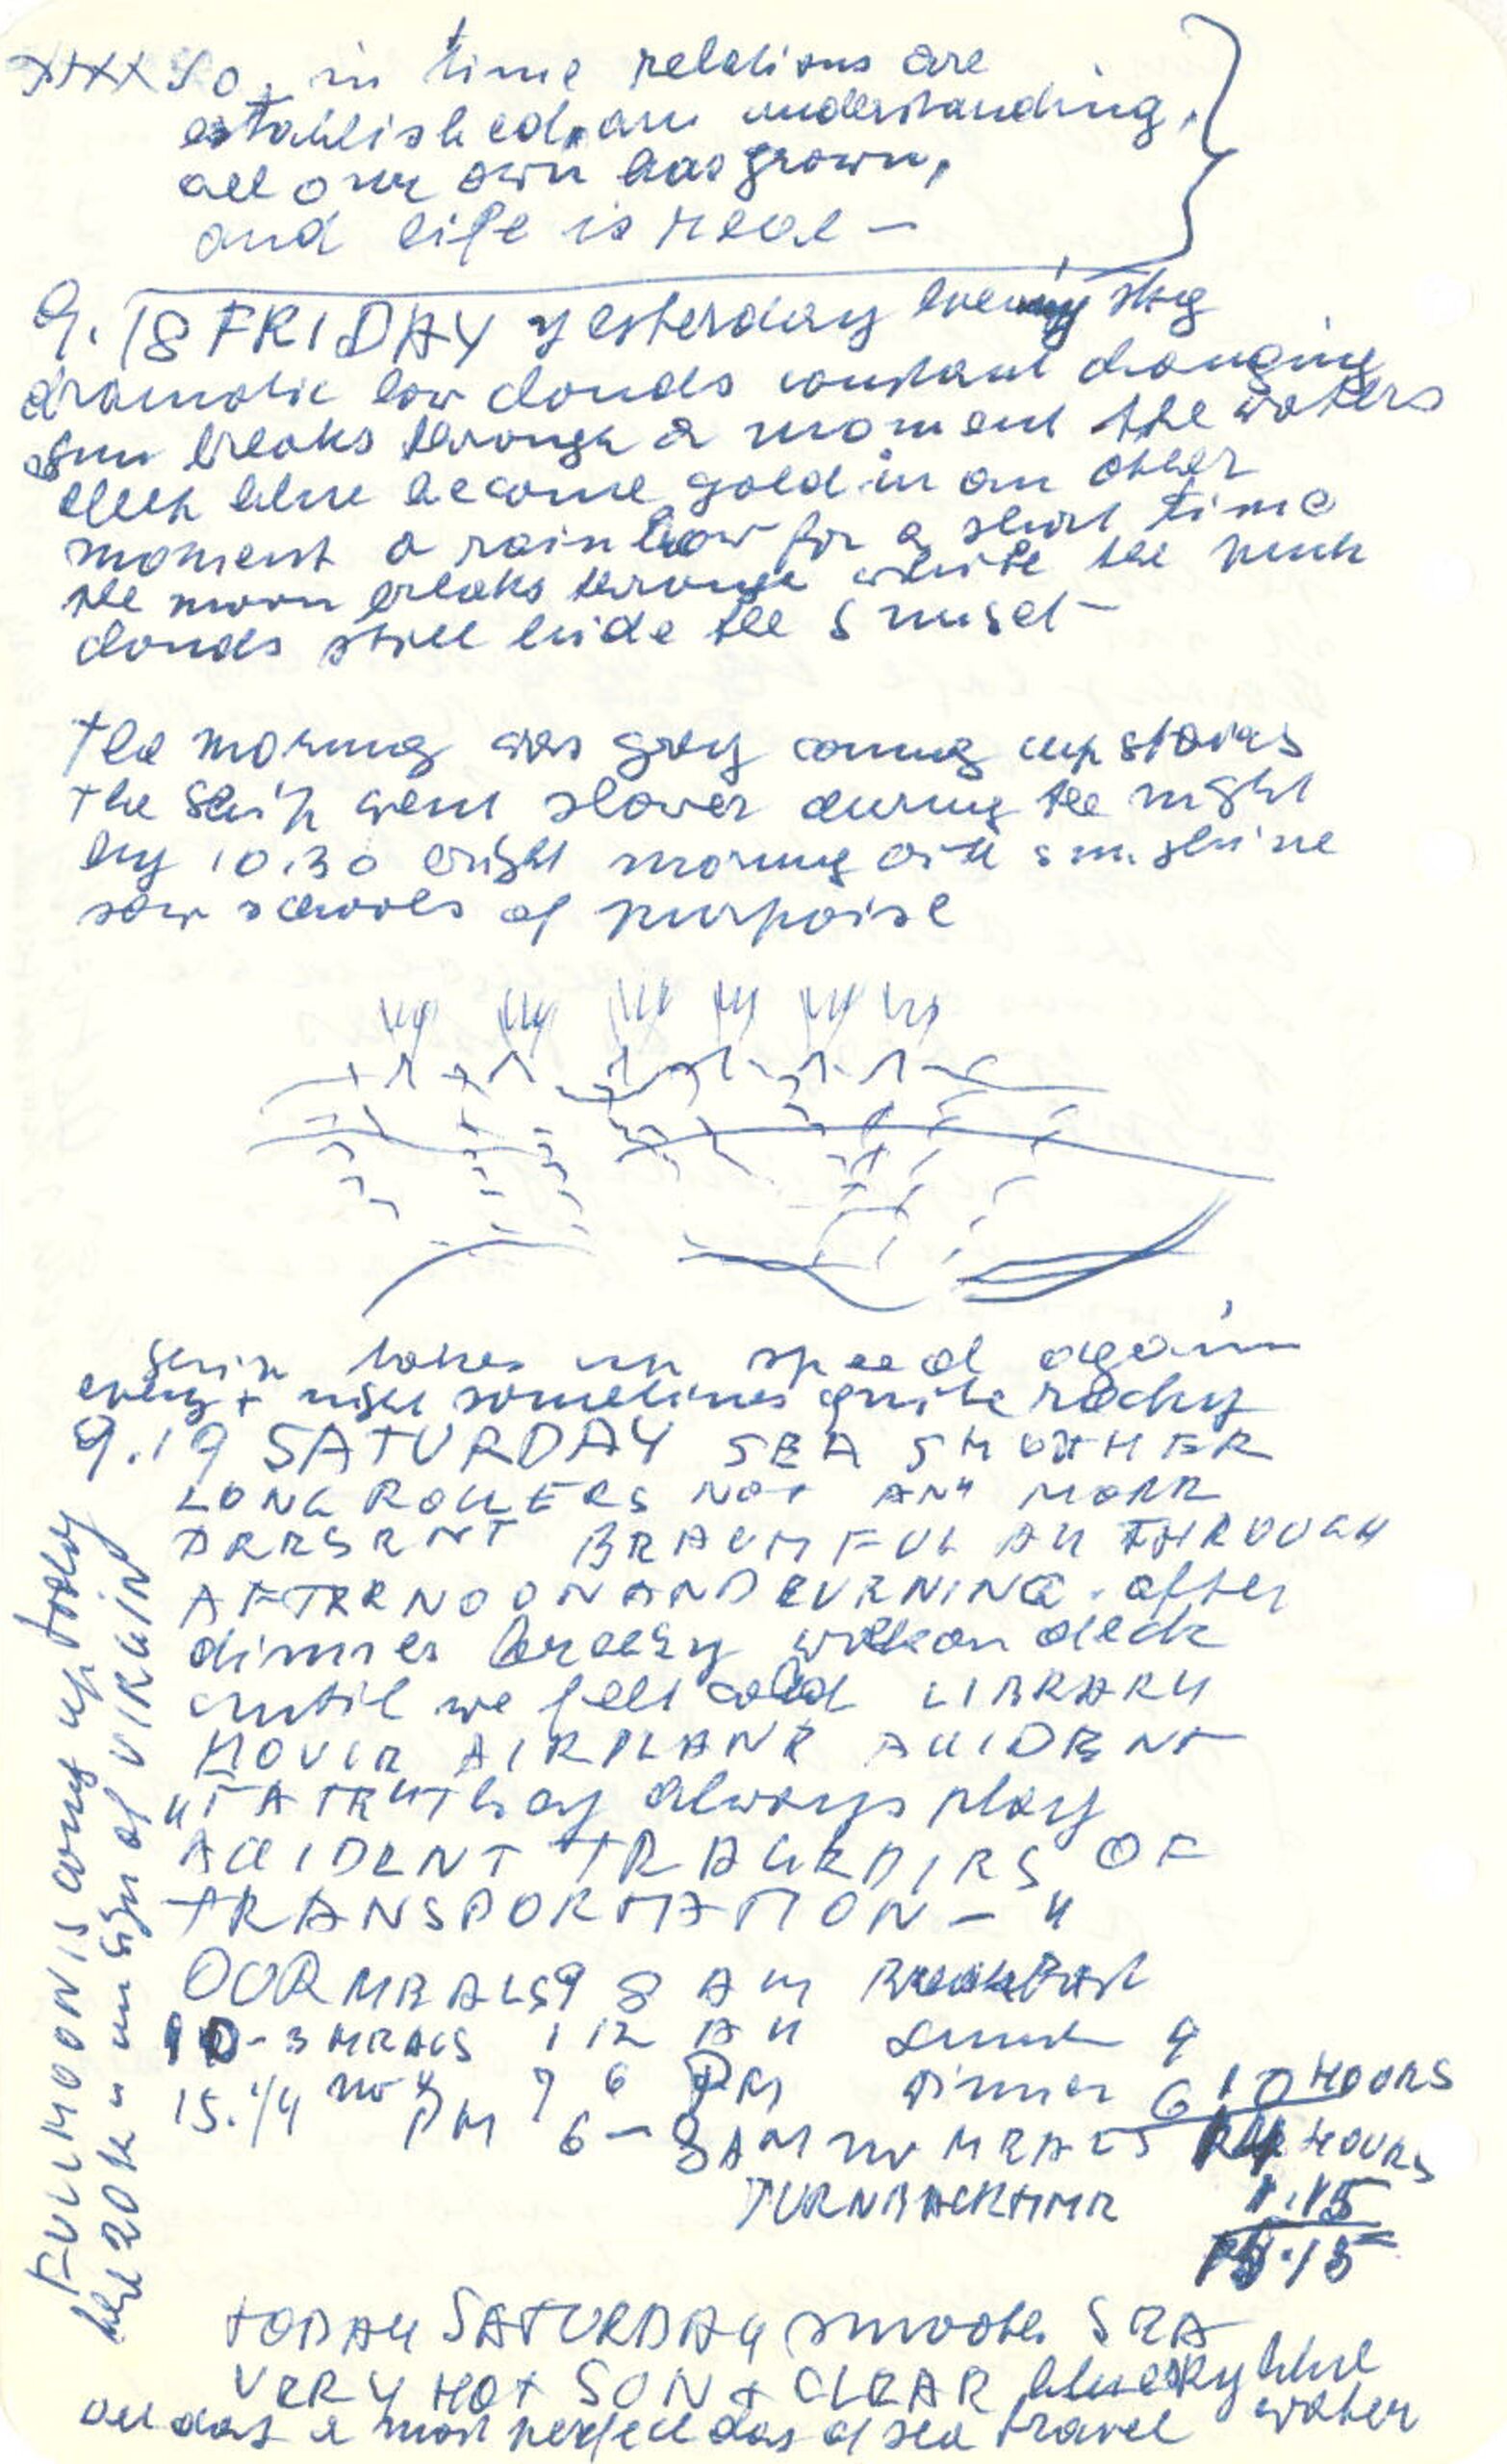 XXXX So, in time relations are
established, an understanding,
all our own has grown,
and life is real —
9. 18 FRIDAY yesterday evening sky
dramatic low clouds constant changing
sun breaks through a moment the waters
blue become gold in an other
moment a rainbow for a short time
the moon breaks through while the pink
clouds still hide the sunset —
the morning was grey coming up stairs
the ship went slower during the night
by 10.30 bright morning with sunshine
saw schools of purpoise
Ship takes up speed again
every + night sometimes quite rocky
9.19 SATURDAY SEA SMOOTHER
LONG ROLLERS NOT ANY MORE
PRESENT BEAUTIFUL ALL THROUGH
AFTERNOON AND EVENING. after
dinner breezy walk on deck
until we felt cold LIBRARY
MOVIE AIRPLANE ACCIDENT
"FATE" they always play
ACCIDENT TRAGEDIES OF
TRANSPORMATION — "
OUR MEALS 9 8 AM Breakfast
10 - 3 MEALS 1 12 AM Lunch 4
15.1/4 no " 7 6 PM Dinner 6 10 HOURS
PM 6 — 8 AM no MEALS 14 HOURS
TURN BACK TIME 1.15
15.15
TODAY SATURDAY smooth SEA
VERY HOT SUN + CLEAR blue sky blue
all day a most perfect day of sea travel water
FULL MOON IS coming up today
the 20th in sign of VIRGIN